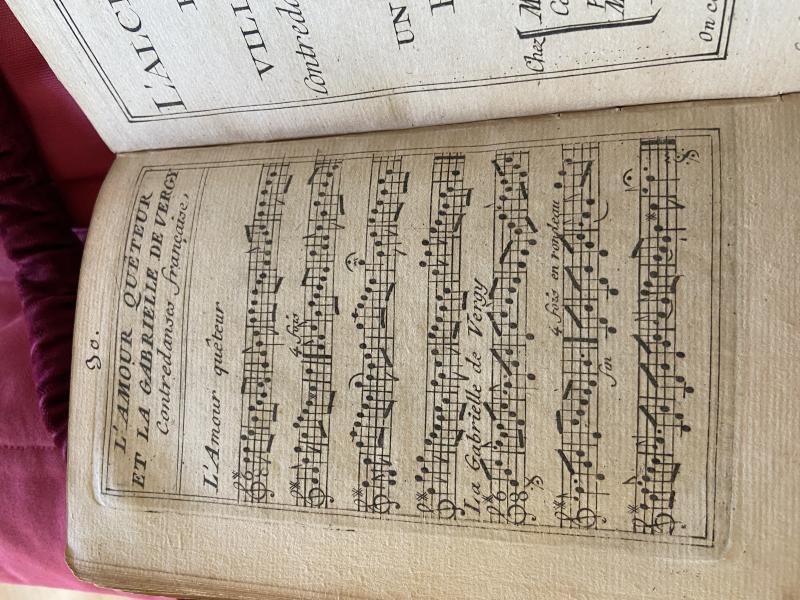 90.
L'AMOUR QUÊTEUR
ET LA GABRIELLE DE VERGY
Contredanses françaises,
L'Amour quêteur
4 fois
La Gabrielle de Vergy
4 fois en rondeau
fin
VILL
Contreda
UN
Chez
On c